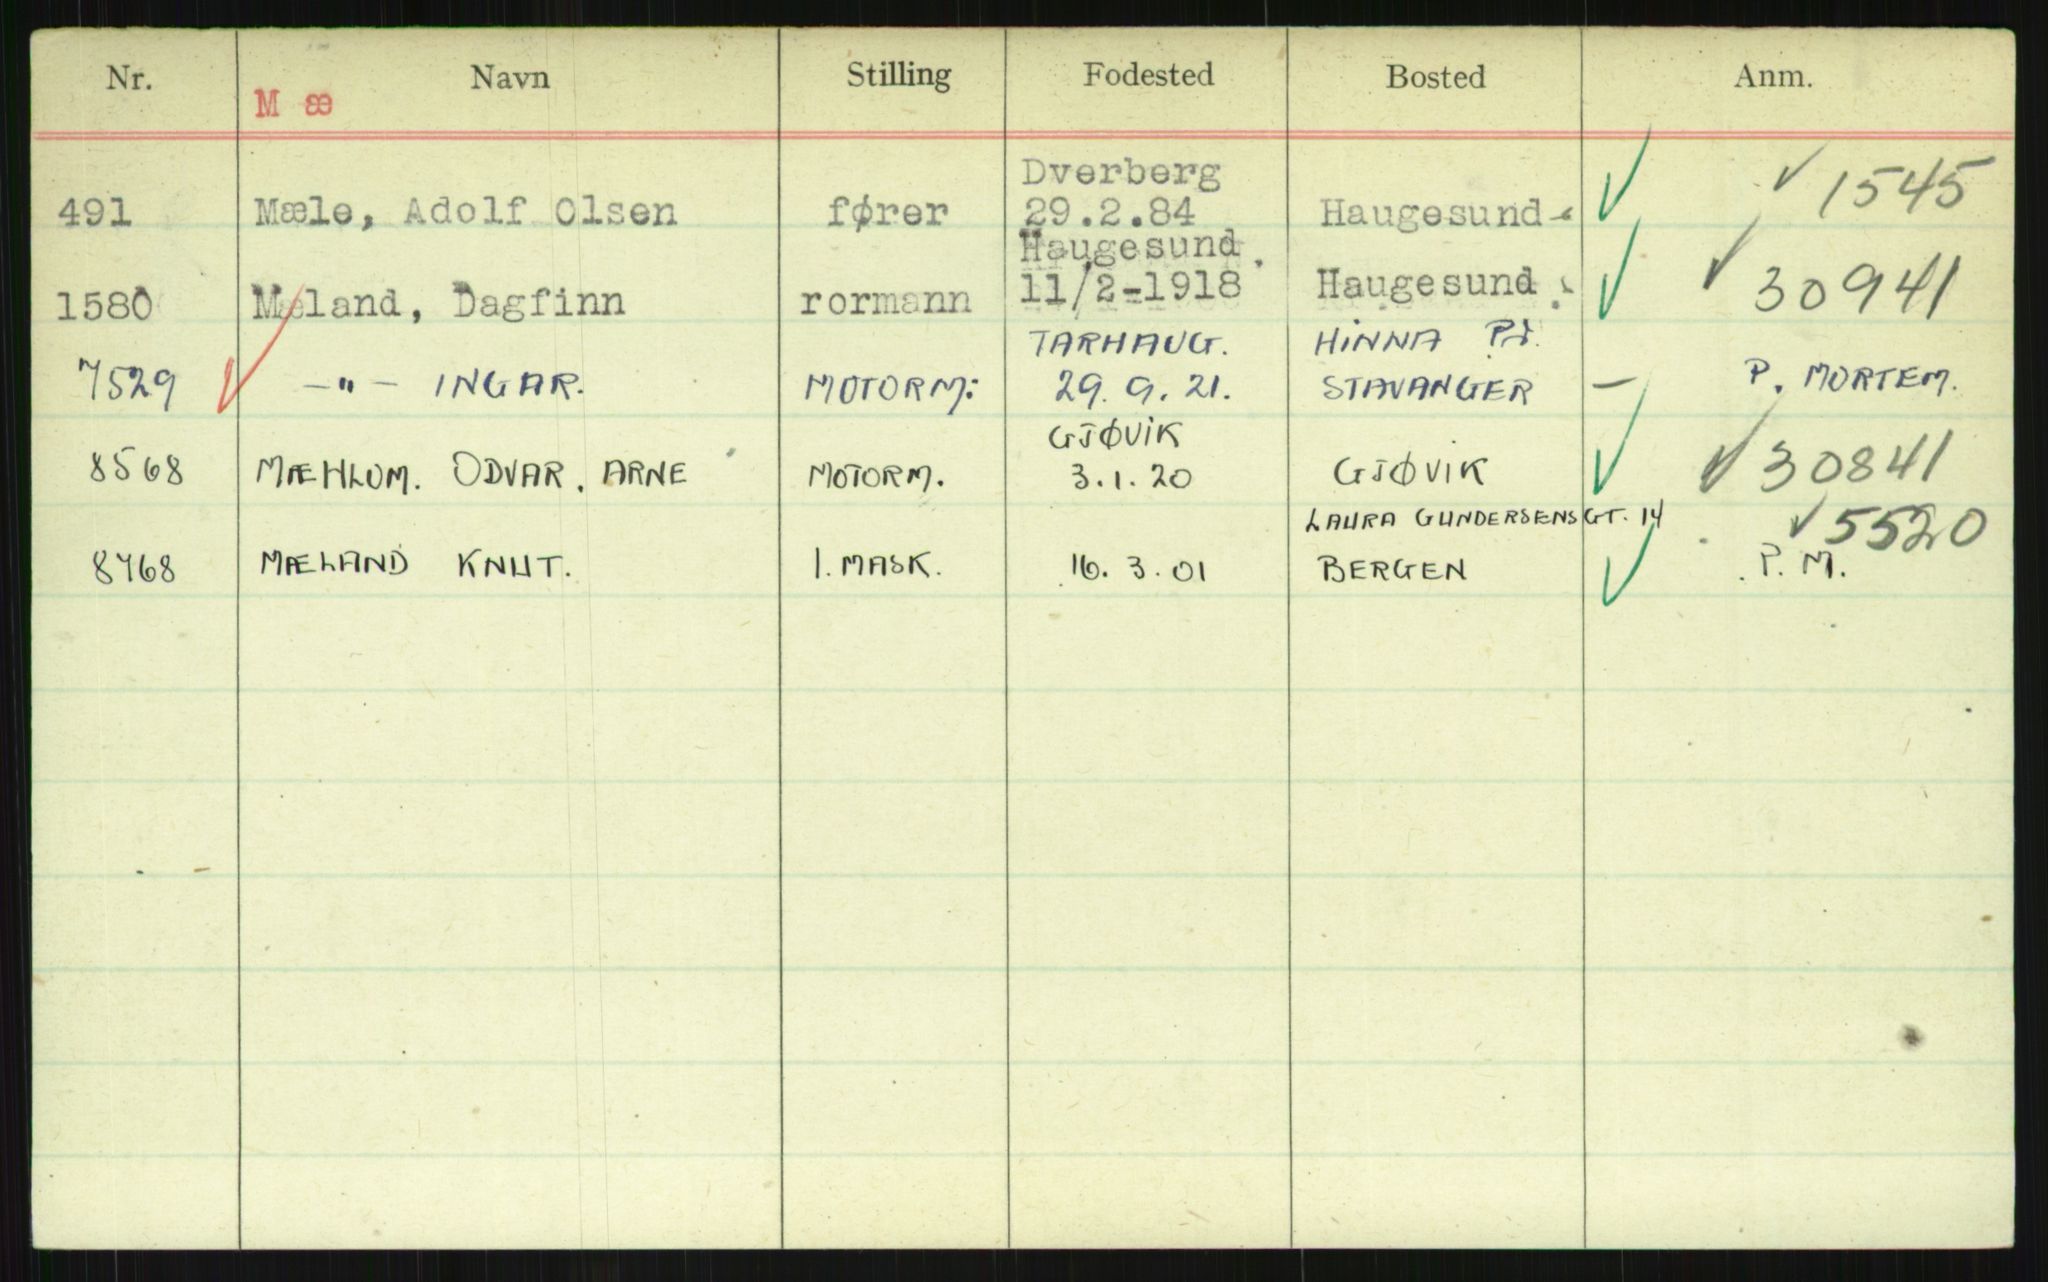 Nr. Navn Stilling Fodested Bosted Anm.
M æ
Dverberg
491 Mæle, Adolf Olsen fører 29.2.84 Haugesund 1545
Haugesund.
1580 Mæland, Dagfinn rormann 11/2-1918 Haugesund. 30941
TARHAUG. HINNA
7529 -"- INGAR. MOTORM: 29.9.21. STAVANGER - P. MORTEM.
GJØVIK
8568 MÆHLUM. ODVAR. ARNE MOTORM. 3.1.20 GJØVIK 30841
LAURA GUNDERSENSGT. 14 5520
8768 MÆLAND KNUT. 1. MASK. 16.3.01 BERGEN P.M.